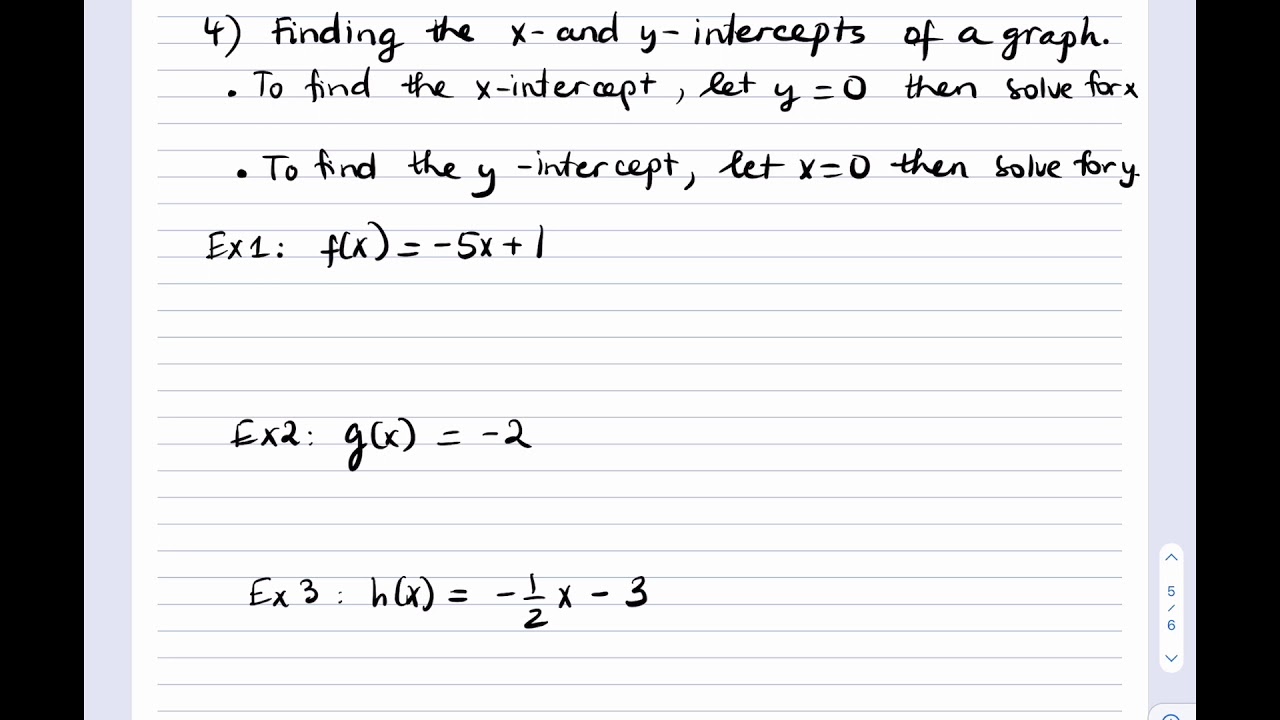 4) Finding the x- and y- intercepts of a graph.
. To find the x-intercept, let y = 0 then solve for x
• To find the y -intercept, let x = 0 then solve for y
Ex1: f(x) = -5x + 1
Ex2: g(x) = -2
Ex 3 : h(x) = -1/2 x - 3
5
/
6